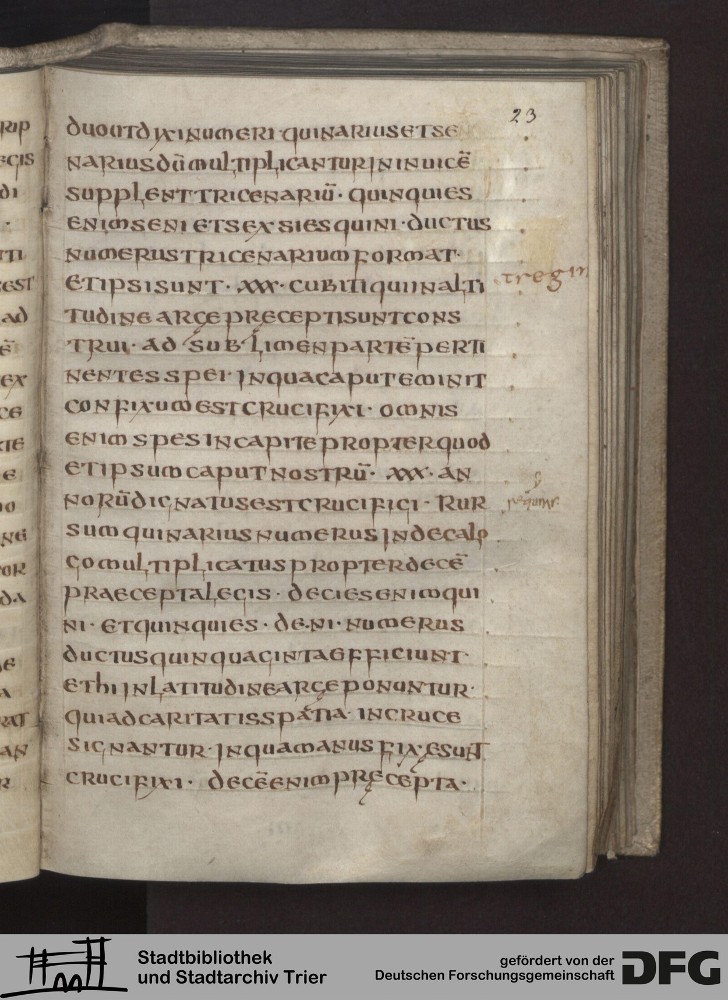 23
duo ut dixi numeri · quinarius et se
narius dū multiplicantur in inuicē
supplent tricenariū · quinquies
enim seni et sexsies quini · ductus
numerus tricenarium format ·
et ipsi sunt · xxx · cubiti qui in alti
tudine arcę preceptisunt cons
trui · ad sublimen partē perti
nentes spei · in qua caput eminit
confixum est crucifixi · omnis
enim spes in capite propter quod
et ipsum caput nostrū · xxx · an
norū dignatus est crucifigi · rur
sum quinarius numerus in decalo
go multiplicatus propter decē
praecepta legis · decies enim qui
ni · et quinquies · deni · numerus
ductus quinquaginta efficiunt ·
et hi in latitudine arcę ponuntur ·
qui ad caritatis spatia · in cruce
signantur · in qua manus fixę sunt
crucifixi · decē enim pręcepta ·
tregin
Stadtbibliothek
und Stadtarchiv Trier
gefördert von der
Deutschen Forschungsgemeinschaft
DFG